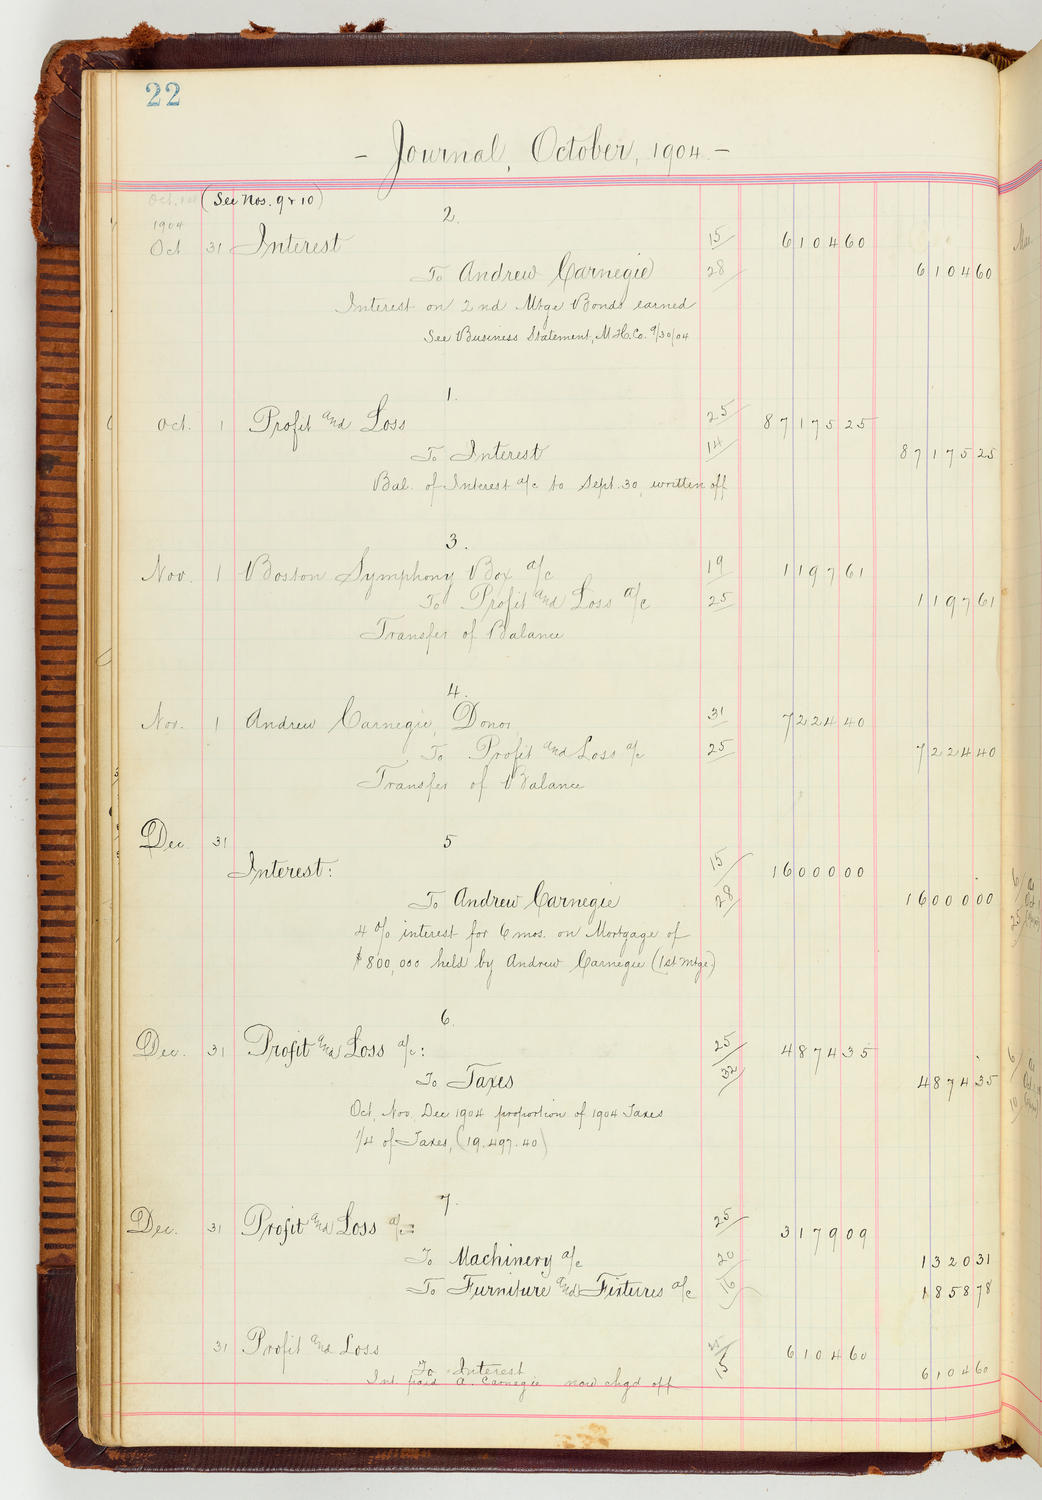 22
- Journal, October, 1904 -
Oct. 1st (See Nos. 9 & 10)
2.
1904
Oct 31 Interest 15 6104 60
To Andrew Carnegie 28 6104 60
Interest on 2nd Mtge Bonds earned
See Business Statement, M.H.Co. 9/30/04
1.
Oct. 1 Profit and Loss 25 87175 25
To Interest 14 87175 25
Bal. of Interest a/c to Sept. 30, written off
3.
Nov. 1 Boston Symphony Box a/c 19 1197 61
To Profit and Loss a/c 25 1197 61
Transfer of Balance
4.
Nov. 1 Andrew Carnegie, Donor, 31 7224 40
To Profit and Loss a/c 25 7224 40
Transfer of Balance
Dec. 31 5
Interest: 15 16000 00
To Andrew Carnegie 28 16000 00
4% interest for 6 mos. on Mortgage of
$800,000 held by Andrew Carnegie (1st Mtge)
6.
Dec. 31 Profit and Loss a/c: 25 4874 35
To Taxes 32 4874 35
Oct, Nov, Dec 1904 proportion of 1904 Taxes
1/4 of Taxes, (19.497.40)
7.
Dec. 31 Profit and Loss a/c= 25 3179 09
To Machinery a/c 20 1320 31
To Furniture and Fixtures a/c 16 1858 78
31 Profit and Loss 25 6104 60
To Interest 15 6104 60
Int. paid A. Carnegie now chgd off